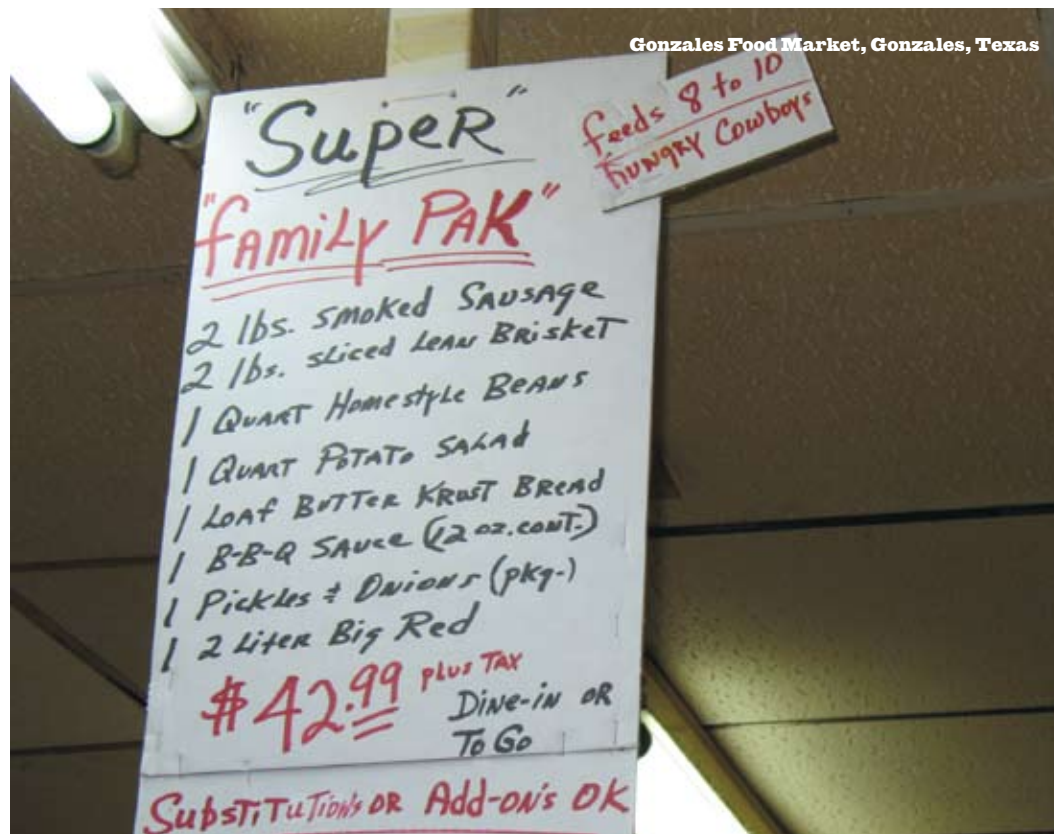 Gonzales Food Market, Gonzales, Texas
"Super"
feeds 8 to 10
hungry Cowboys
"family PAK"
2 lbs. smoked Sausage
2 lbs. sliced Lean Brisket
1 Quart Homestyle Beans
1 Quart Potato Salad
1 Loaf Butter Krust Bread
1 B-B-Q Sauce (12 oz. cont.)
1 Pickles & Onions (pkg.)
1 2 Liter Big Red
$42.99 plus Tax
Dine-in or
To Go
Substitution's or Add-on's OK